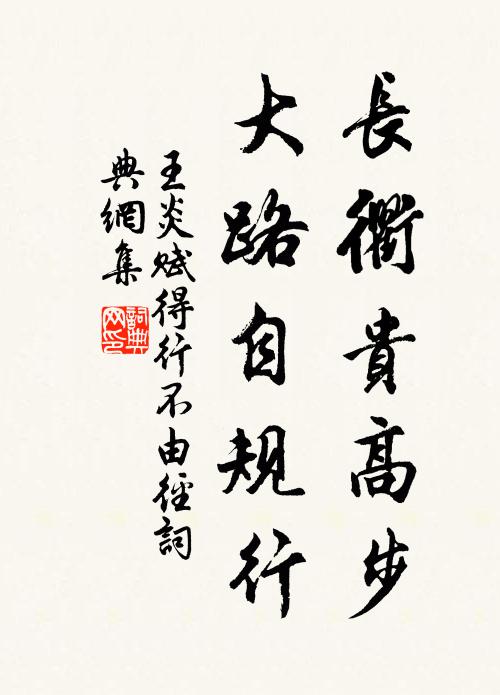 長衢貴高步
大路自規行
王炎賦得行不由徑詞
典網集
詞典
网印